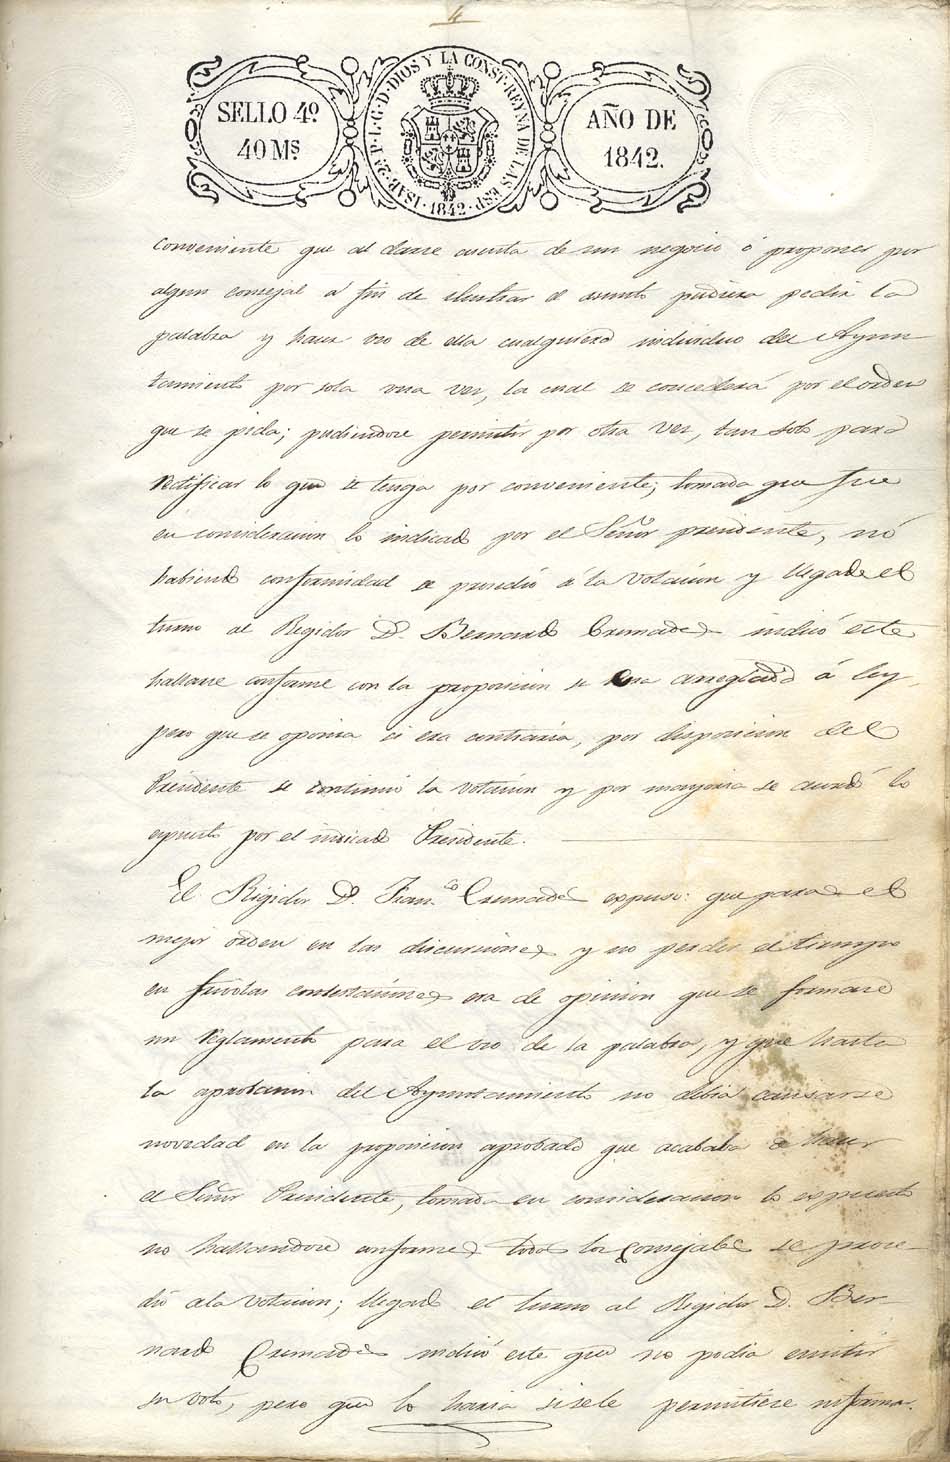 4
SELLO 4º
40 Mˢ
ISAB. 2ª P. L. G. D. DIOS Y LA CONST. REYNA DE LAS ESP. 1842
AÑO DE
1842.
conveniente que al darse cuenta de un negocio ó proponer por
algun consejal á fin de ilustrar el asunto pudiera pedir la
palabra y hacer uso de ella cualquiera individuo del Ayun
tamiento por sola una vez, la cual se concederá por el orden
que se pida; pudiendose permitir por otra vez, tan solo para
rectificar lo que se tenga por conveniente; tomada que fue
en consideracion lo indicado por el Señor presidente, nó
habiendo conformidad se prosedió á la votacion y llegado el
turno al Regidor Dⁿ. Bernardo Cremades indicó este
hallarse conforme con la proposicion si era arreglada á ley,
pero que se oponia si era contraria, por disposicion del
Presidente se continuó la votacion y por mayoria se acordó lo
espuesto por el indicado Presidente.
El Regidor Dⁿ. Franᶜᵒ Cremades espuso: que para el
mejor orden en las discusiones y no perder el tiempo
en frivolas contestaciones era de opinion que se formase
un Reglamento para el uso de la palabra, y que hasta
la aprobacion del Ayuntamiento no debia causarse
novedad en la proposicion aprobada que acababa de hacer
el Señor Presidente, tomada en consideracion lo espuesto
no hallandose conformes todos los Consejales se proce-
dió a la votacion; llegado el turno al Regidor D. Ber-
nardo Cremades indicó este que no podia emitir
su voto, pero que lo haria si se le permitiese informa-